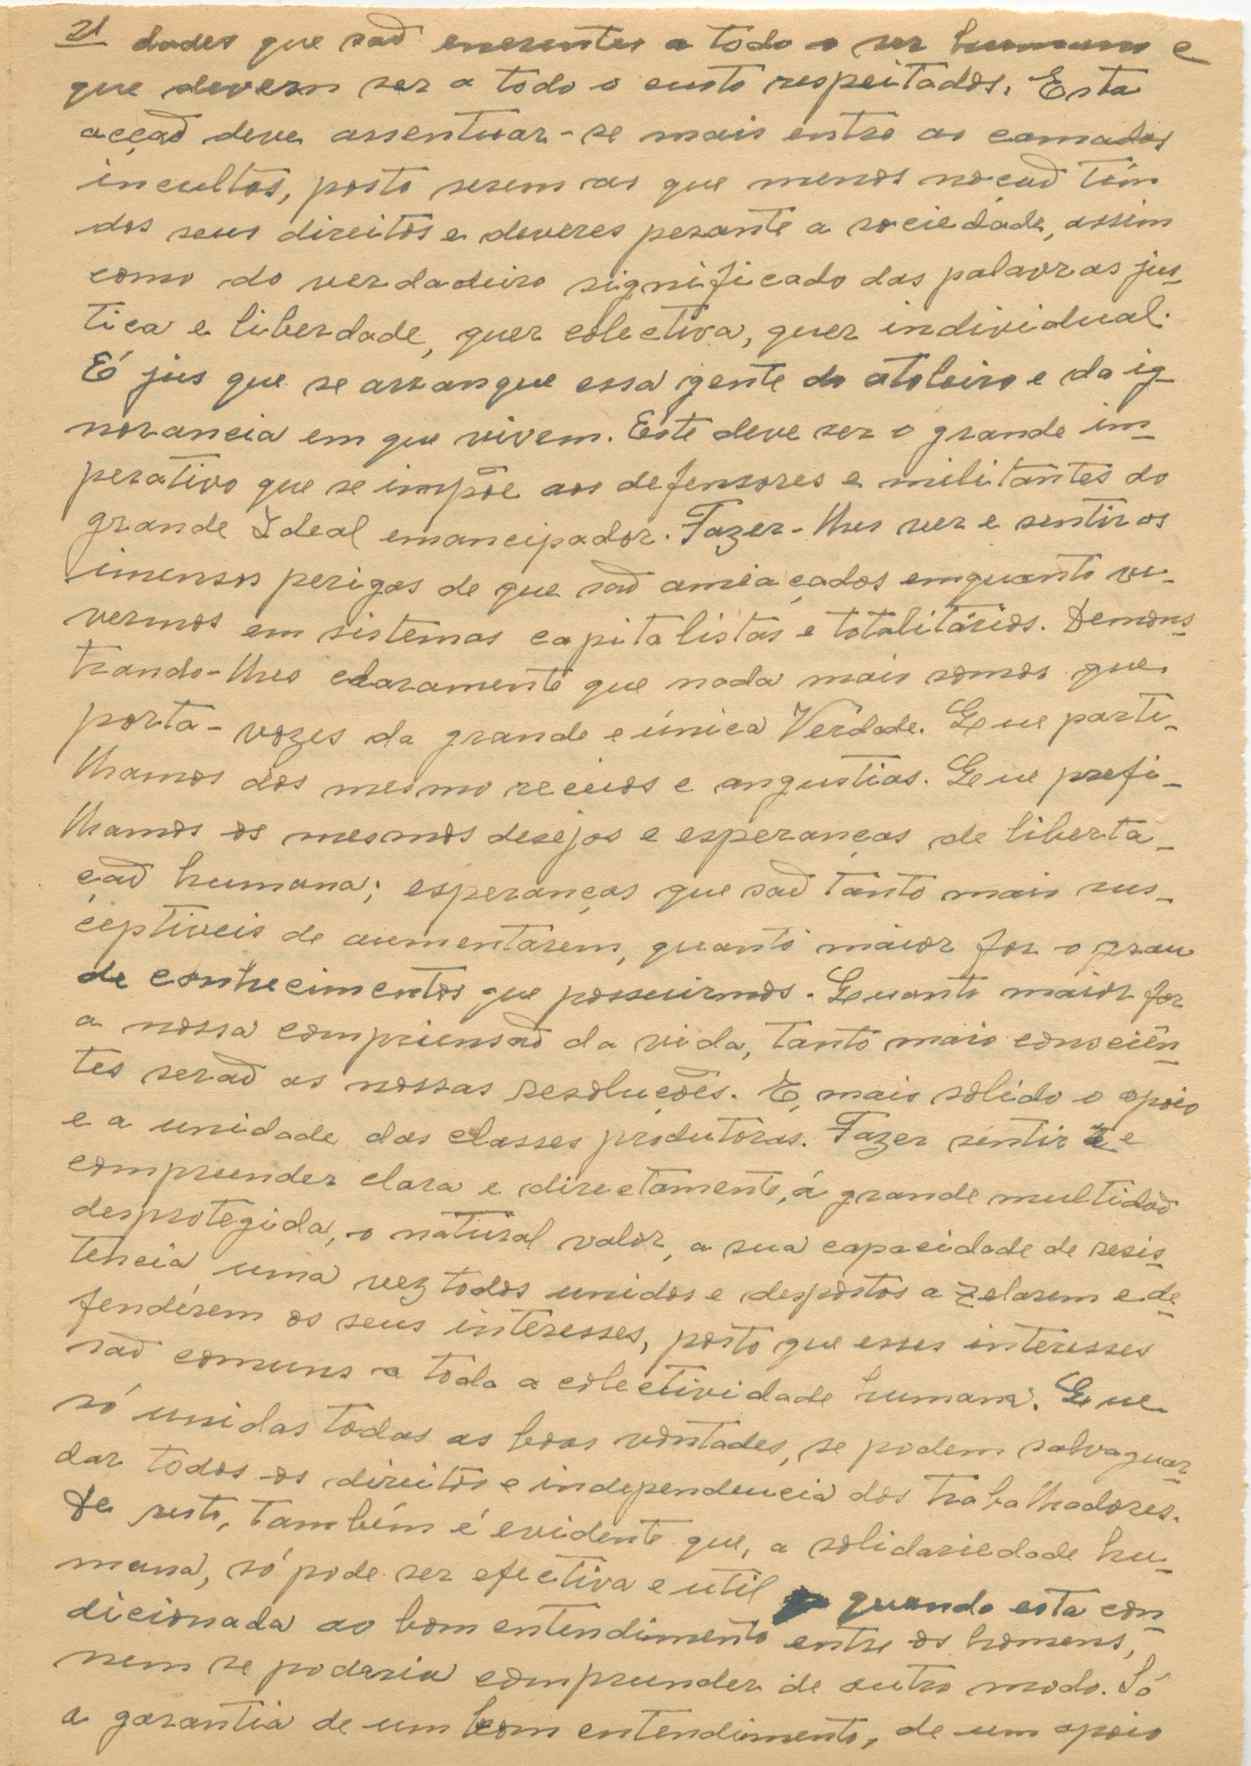 21 dades que saõ enerentes a todo o ser humano e
que devem ser a todo o custo respeitados. Esta
acçaõ deve assentuar-se mais entre as camadas
incultas, posto serem as que menos nocaõ têm
dos seus direitos e deveres perante a sociedade, assim
como do verdadeiro significado das palavras jus-
tica e liberdade, quer colectiva, quer individual.
É jus que se arranque essa gente do atoleiro e da ig-
norancia em que vivem. Este deve ser o grande im-
perativo que se impõe aos defensores e militantes do
grande Ideal emancipador. Fazer-lhes ver e sentir os
imensos perigos de que saõ ameaçados emquanto vi-
vermos em sistemas capitalistas e totalitários. Demons-
trando-lhes claramente que nada mais somos que
porta-vozes da grande e única Verdade. Que parti-
lhamos dos mesmo receios e angustias. Que prefi-
lhamos os mesmos desejos e esperanças de liberta-
çaõ humana; esperanças que saõ tanto mais sus-
ceptiveis de aumentarem, quanto maior for o grau
de conhecimentos que possuirmos. Quanto maior for
a nossa compriensaõ da vida, tanto mais consciên-
tes seraõ as nossas resoluções. E, mais solido o apoio
e a unidade das classes produtoras. Fazer sentir e
compreender clara e directamente, á grande multidaõ
desprotegida, o natural valor, a sua capacidade de resis-
tencia, uma vez todos unidos e despostos a zelarem e de-
fenderem os seus interesses, posto que esses interesses
saõ comuns a toda a colectividade humana. Que
só unidas todas as boas vontades, se podem salvaguar-
dar todos os direitos e independencia dos trabalhadores.
De resto, também é evidente que, a solidariedade hu-
mana, só pode ser efectiva e util quando esta con-
dicionada ao bom entendimento entre os homens,
nem se poderia compreender de outro modo. Só
a garantia de um bom entendimento, de um apoio